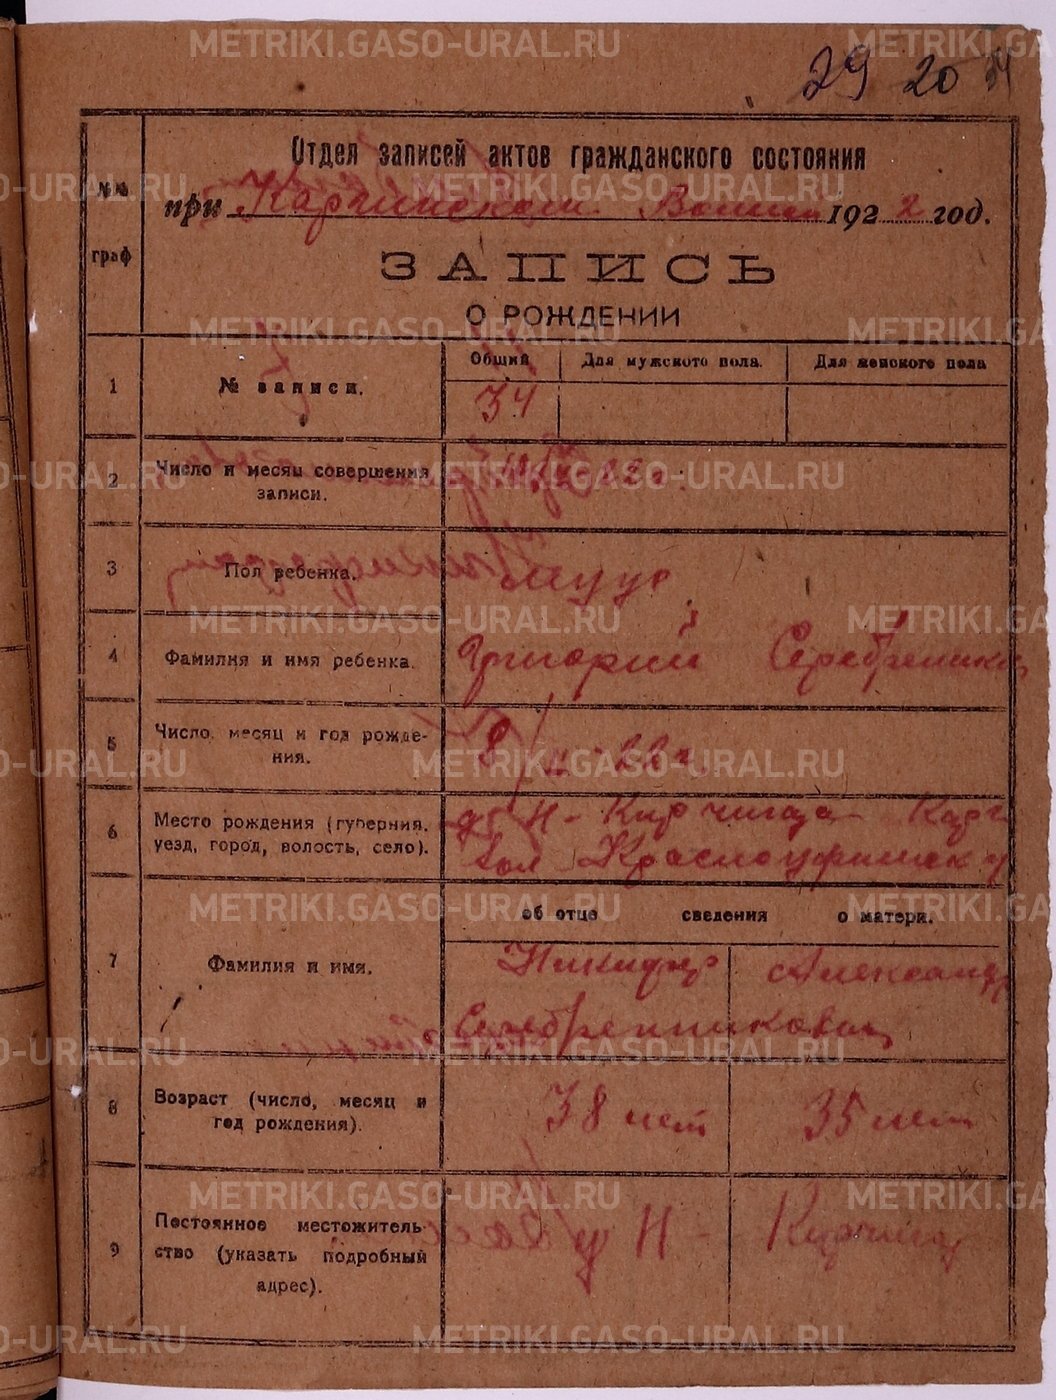 29 20
Отдел записей актов гражданского состояния
№№ граф
при 1922 год.
ЗАПИСЬ
О РОЖДЕНИИ
1 № записи. Общий Для мужского пола. Для женского пола
34
2 Число и месяц совершения
записи.
3 Пол ребенка. муж
4 Фамилия и имя ребенка. Григорий
5 Число, месяц и год рожде-
ния. 8/ 22 г.
6 Место рождения (губерния,
уезд, город, волость, село).
вол Красноуфимск у
об отце сведения о матери.
7 Фамилия и имя. Никифор Александр
Серебренниковы
8 Возраст (число, месяц и
год рождения). 38 лет 35 лет
9 Постоянное местожитель
ство (указать подробный
адрес).
METRIKI.GASO-URAL.RU